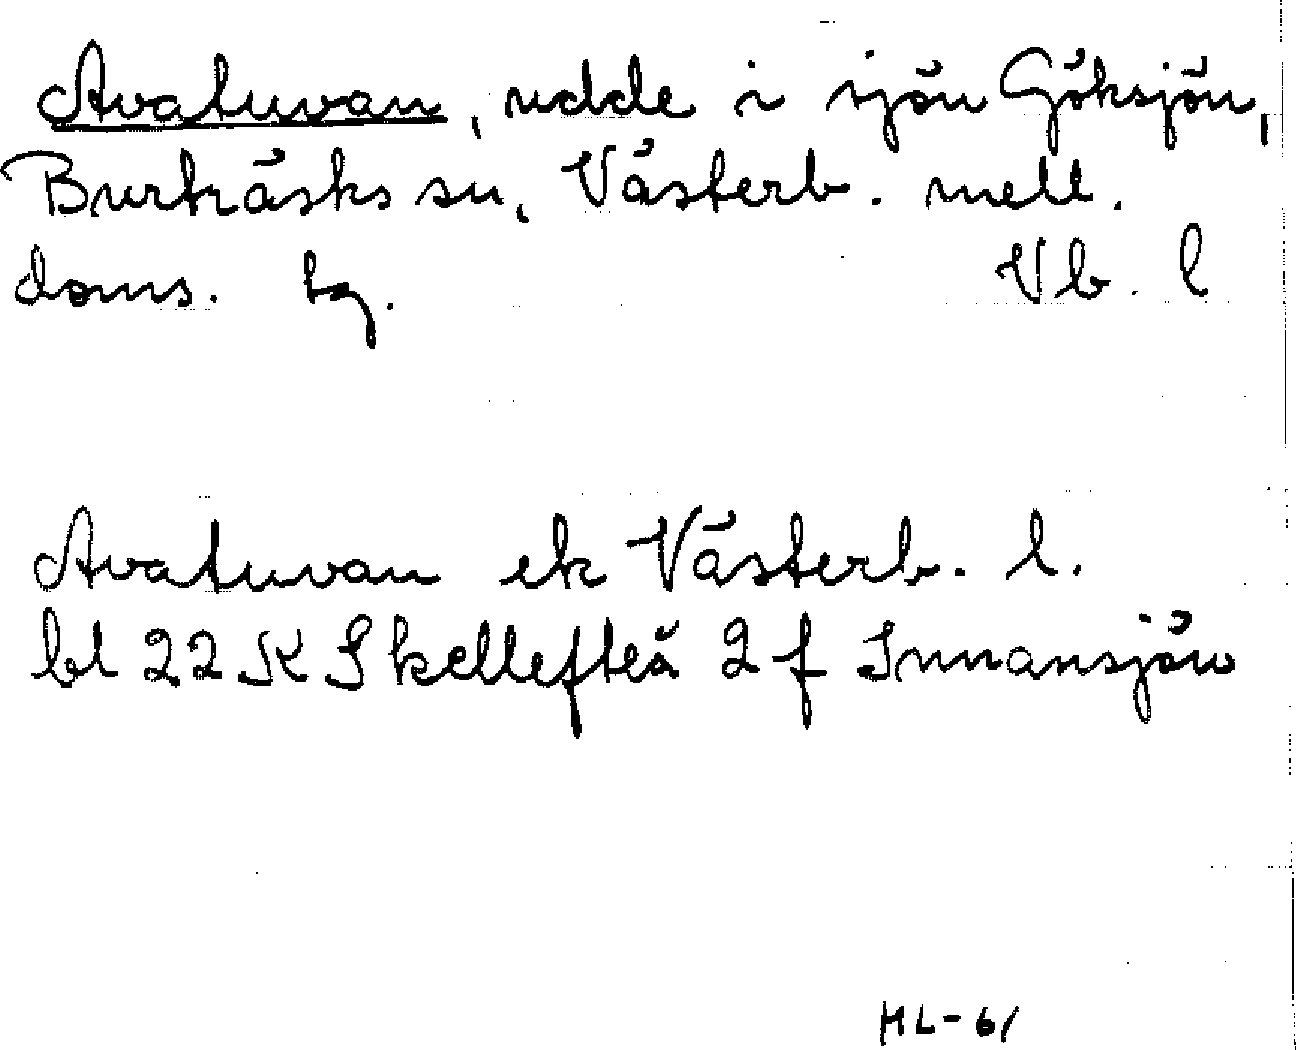 Avatuvan, udde i sjön Göksjön,
Burträsks sn, Västerb. mell.
doms. tg. Vb. l
Avatuvan ek Västerb. l.
bl 22 K Skellefteå 2 f Innansjön
HL-61